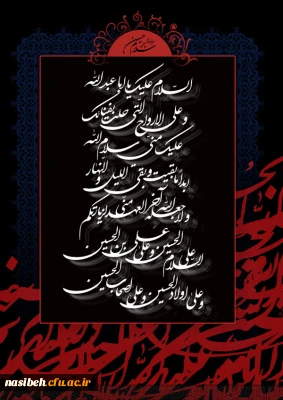 السلام علیک یا اباعبدالله
و علی الارواح التی حلت بفنائک
علیک منی سلام الله
ابدا ما بقیت و بقی اللیل و النهار
و لا جعله الله آخر العهد منی لزیارتکم
السلام علی الحسین و علی علی بن الحسین
و علی اولاد الحسین و علی اصحاب الحسین
nasibeh.cfu.ac.ir